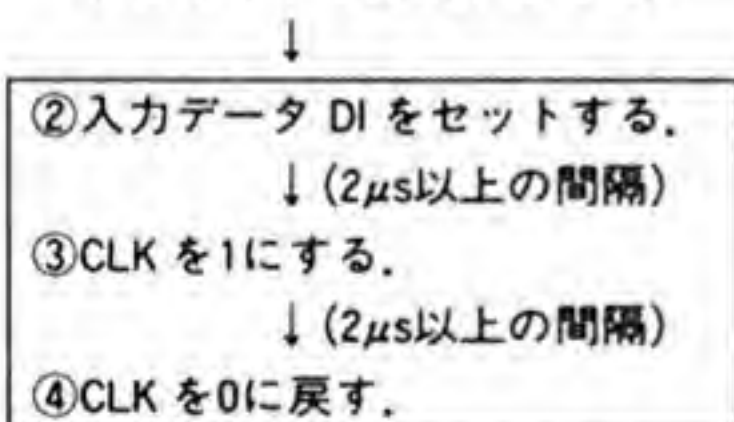 ↓
②入力データ DI をセットする.
↓ (2μs以上の間隔)
③CLK を1にする.
↓ (2μs以上の間隔)
④CLK を0に戻す.